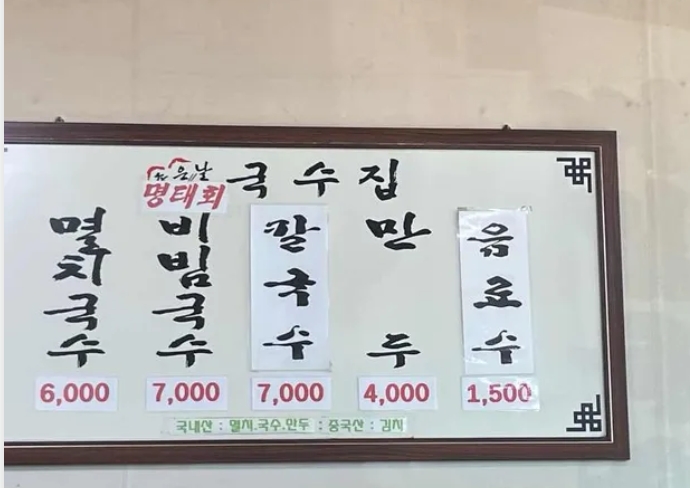 좋은날 국수집
명태회
멸치국수
비빔국수
칼국수
만두
음료수
6,000
7,000
7,000
4,000
1,500
국내산 : 멸치.국수.만두 : 중국산 : 김치